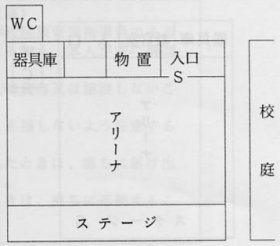 WC
器具庫
物置
入口
S
アリーナ
校庭
ステージ